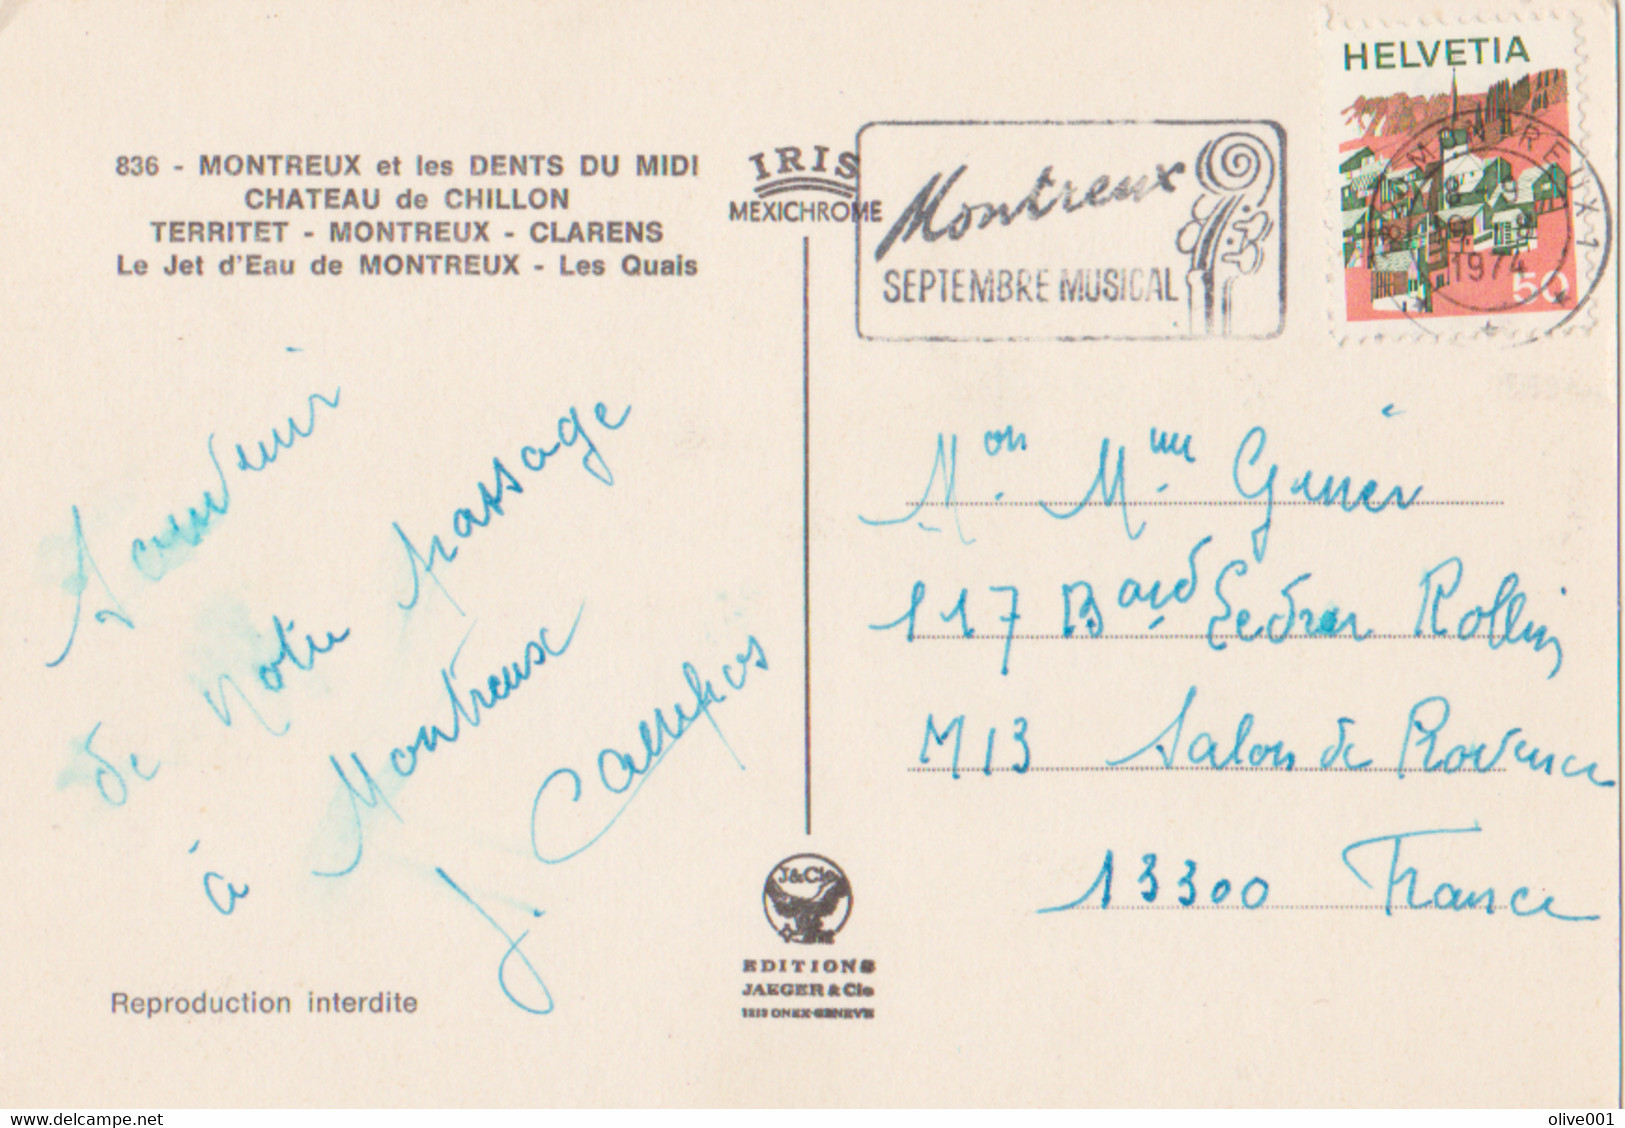 836 - MONTREUX et les DENTS DU MIDI
CHATEAU de CHILLON
TERRITET - MONTREUX - CLARENS
Le Jet d'Eau de MONTREUX - Les Quais
IRIS
MEXICHROME
Montreux
SEPTEMBRE MUSICAL
HELVETIA
50
MONTREUX 1
1974
Souvenir
de notre passage
à Montreux
J. Campos
Mon. Mme.
117 Bard Ledru Rollin
M13 Salon de Provence
13300 France
J&Cie
EDITIONS
JAEGER & Cie
1213 ONEX-GENEVE
Reproduction interdite
olive001